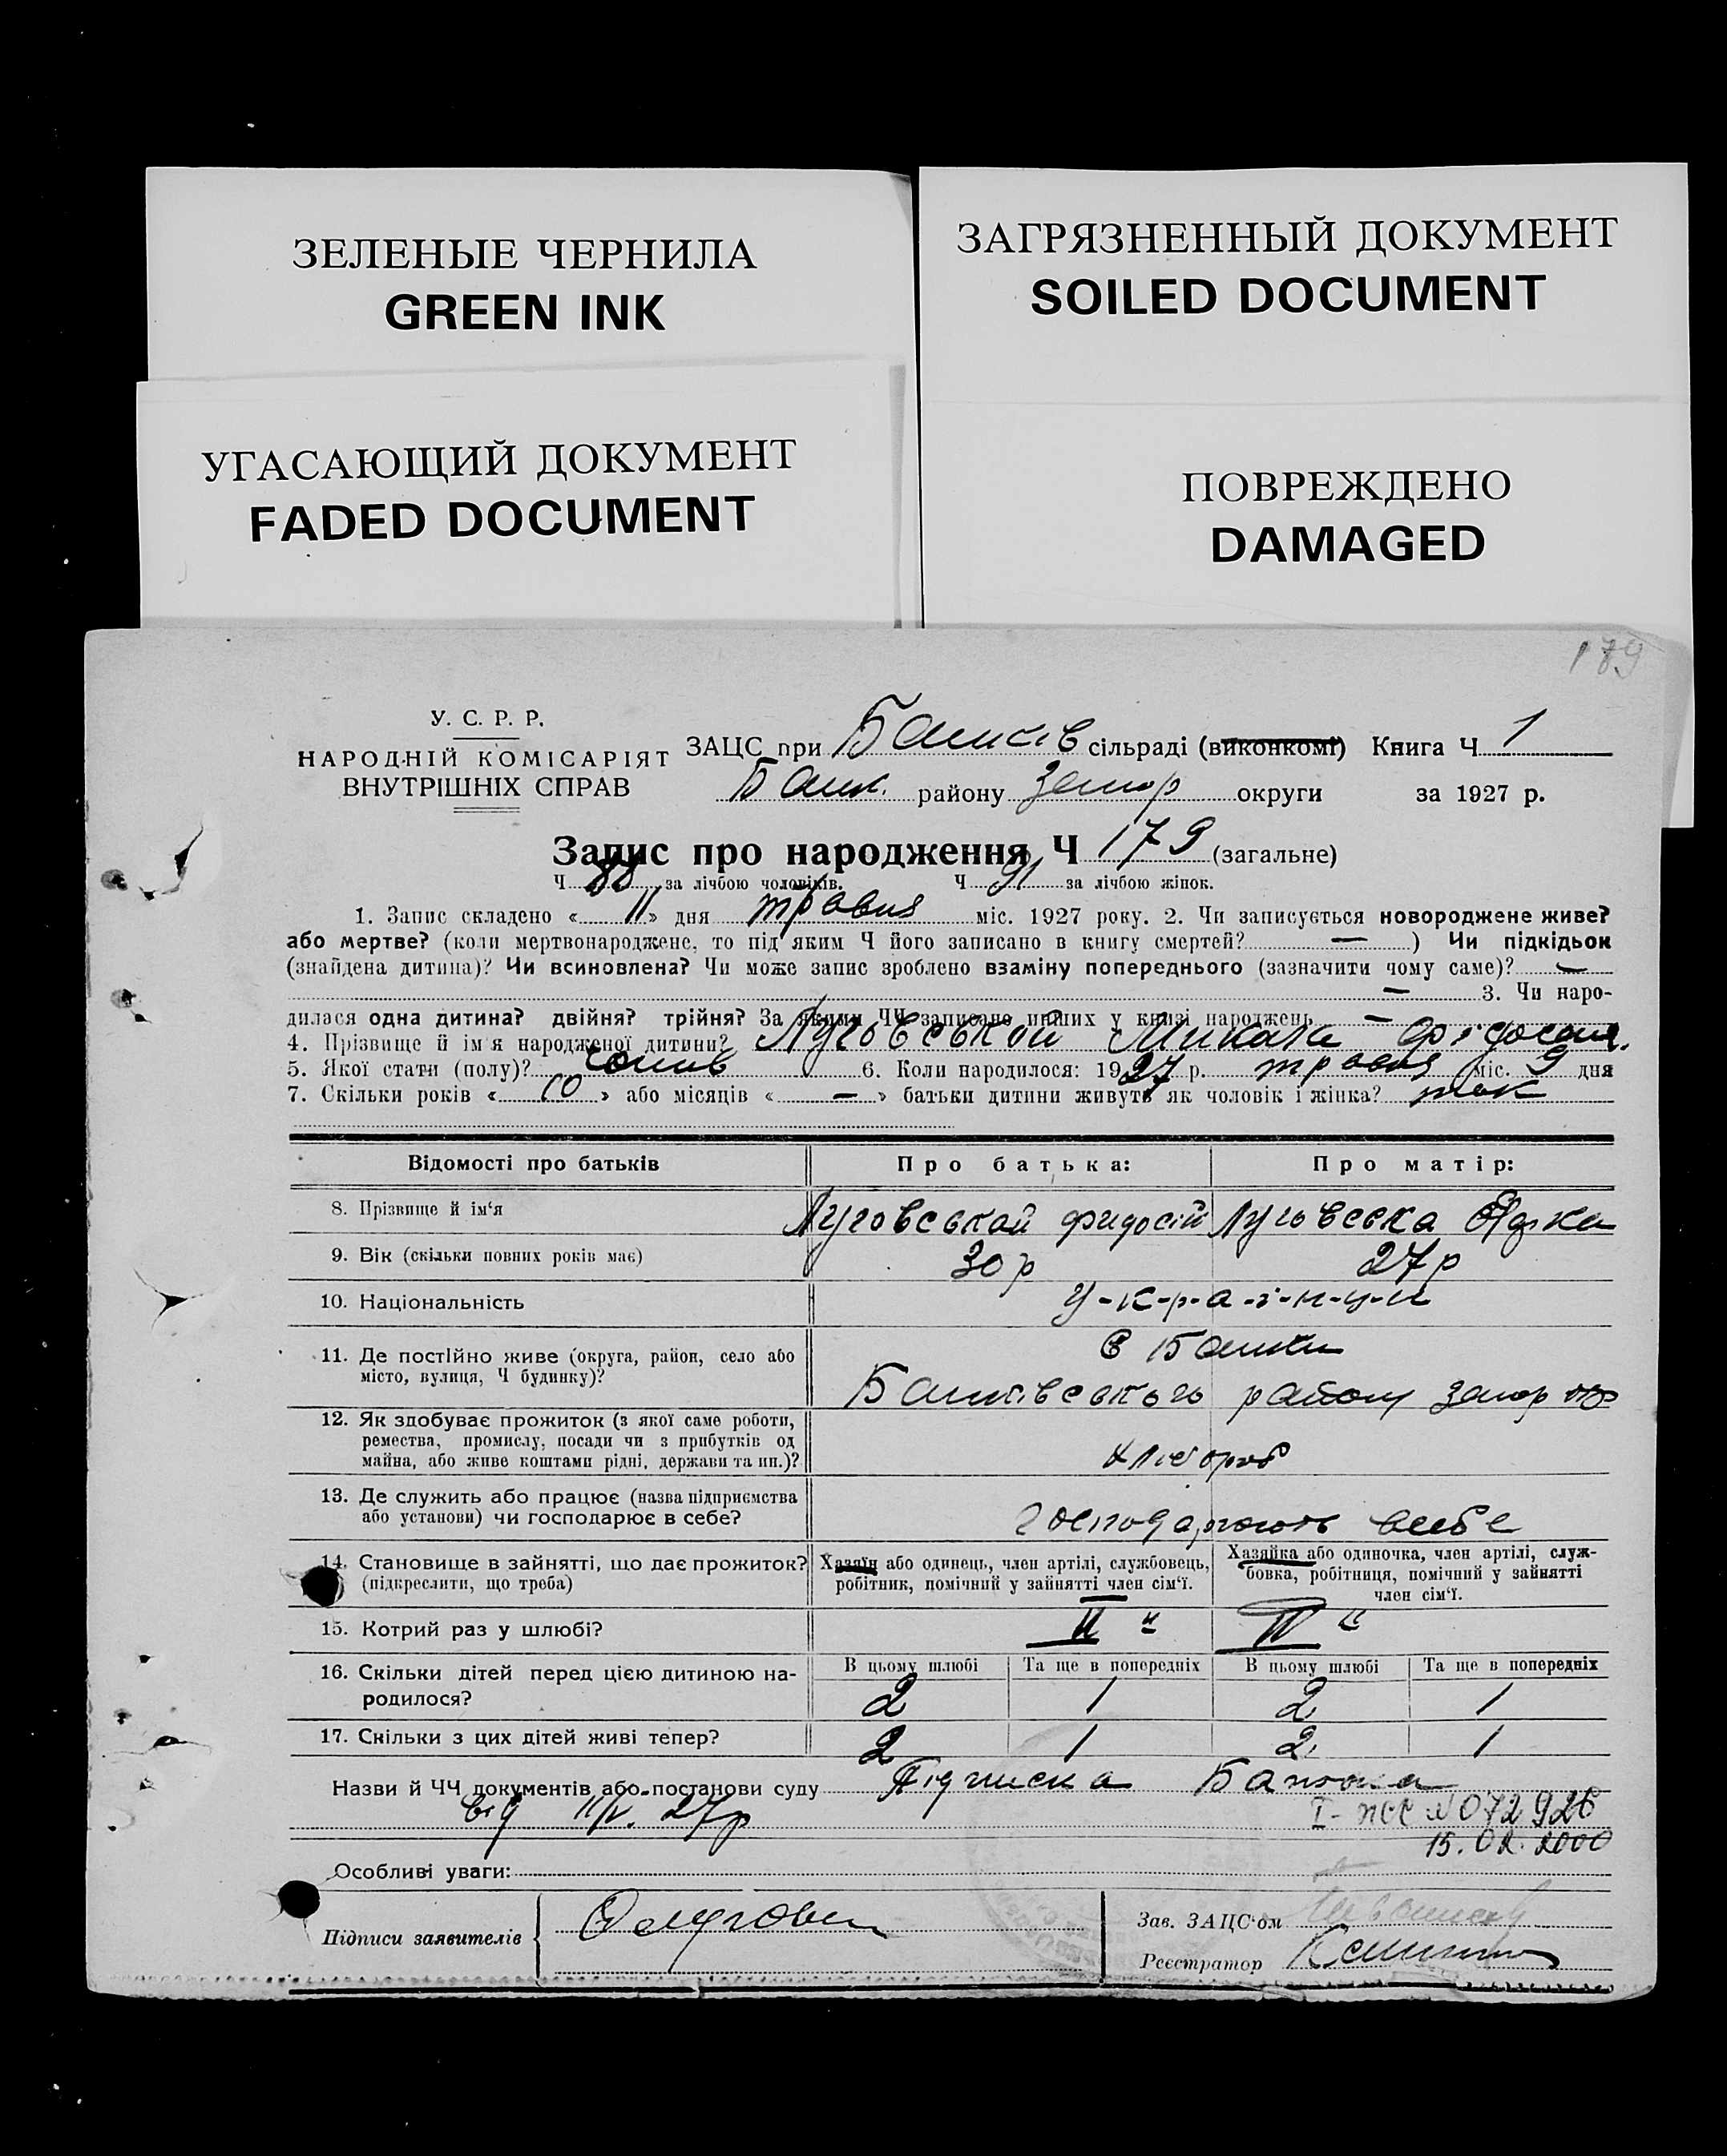 ЗЕЛЕНЫЕ ЧЕРНИЛА
GREEN INK
ЗАГРЯЗНЕННЫЙ ДОКУМЕНТ
SOILED DOCUMENT
УГАСАЮЩИЙ ДОКУМЕНТ
FADED DOCUMENT
ПОВРЕЖДЕНО
DAMAGED
179
У. С. Р. Р.
НАРОДНІЙ КОМІСАРІЯТ
ВНУТРІШНІХ СПРАВ
ЗАЦС при сільраді (виконкомі) Книга Ч 1
району Запор округи за 1927 р.
Запис про народження Ч 179 (загальне)
Ч 88 за лічбою чоловіків. Ч 91 за лічбою жінок.
1. Запис складено « 11 » дня травня міс. 1927 року. 2. Чи записується новороджене живе?
або мертве? (коли мертвонароджене, то під яким Ч його записано в книгу смертей? — ) Чи підкідьок
(знайдена дитина)? Чи всиновлена? Чи може запис зроблено взаміну попереднього (зазначити чому саме)? —
— 3. Чи наро-
дилася одна дитина? двійня? трійня? За якими ЧЧ записано инших у книзі народжень —
4. Прізвище й ім'я народженої дитини? Луговський Микола
5. Якої стати (полу)? 6. Коли народилося: 1927 р. травня міс. 9 дня
7. Скільки років « 10 » або місяців « — » батьки дитини живуть як чоловік і жінка? так
Відомості про батьків Про батька: Про матір:
8. Прізвище й ім'я Луговський Фидосій
9. Вік (скільки повних років має) 30 р 27 р
10. Національність у-к-р-а-ї-н-ц-и
11. Де постійно живе (округа, район, село або
місто, вулиця, Ч будинку)?
району Запор
12. Як здобуває прожиток (з якої саме роботи,
ремества, промислу, посади чи з прибутків од
майна, або живе коштами рідні, держави та ин.)?
хлібороб
13. Де служить або працює (назва підприємства
або установи) чи господарює в себе?
господарюють всебе
14. Становище в зайнятті, що дає прожиток?
(підкреслити, що треба)
Хазяїн або одинець, член артілі, службовець,
робітник, помічний у зайнятті член сім'ї.
Хазяйка або одиночка, член артілі, служ-
бовка, робітниця, помічний у зайнятті
член сім'ї.
15. Котрий раз у шлюбі? II " II "
16. Скільки дітей перед цією дитиною на-
родилося?
В цьому шлюбі Та ще в попередніх В цьому шлюбі Та ще в попередніх
2 1 2 1
17. Скільки з цих дітей живі тепер? 2 1 2 1
Назви й ЧЧ документів або постанови суду Підписка
від 27 р
I-ЖС №072926
15.02.2000
Особливі уваги:
Підписи заявителів
Зав. ЗАЦС'ом
Реєстратор